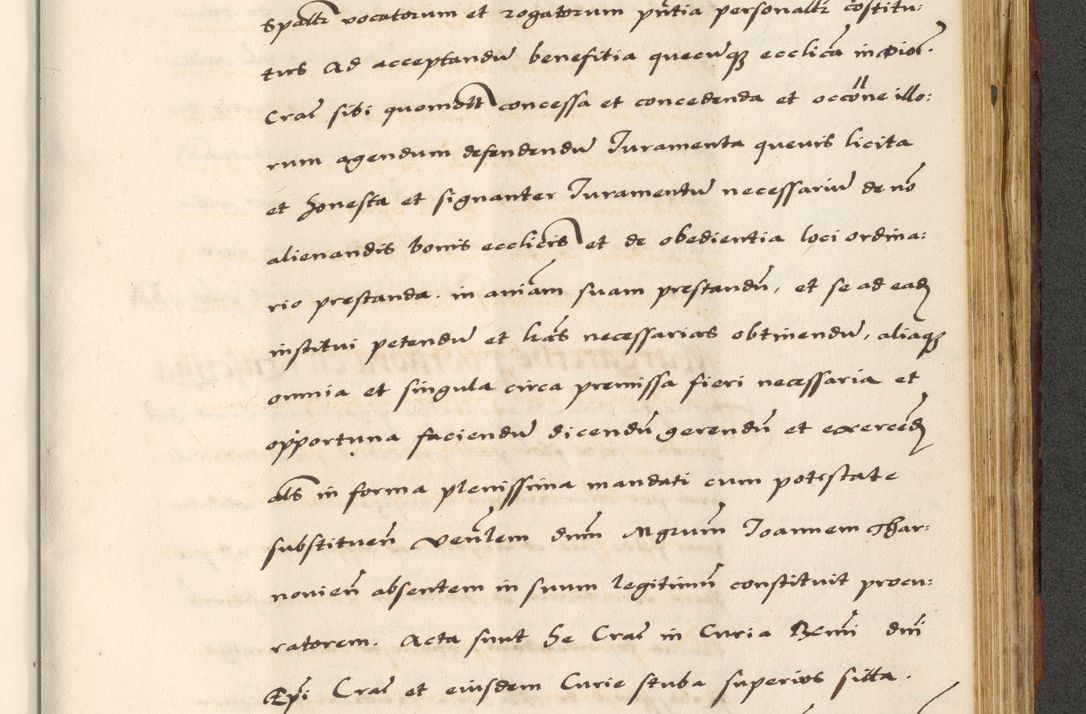 spaltr vocatorum et rogatorum pntia personaltr costitu:
tus ad acceptandu benefitia quecuqꝫ ecclica in dios.
Crac sibi quomoltt concessa et concedenda et occone illo:
rum agendum defendendu Juramenta quevis licita
et honesta et signanter Juramentu necessariu de no
alienandis bonis ecclicis et de obedientia loci ordina:
rio prestanda. in aniam suam prestandu, et se ad eadꝫ
institui petendu et lras necessarias obtinendu, aliaqꝫ
omnia et singula circa premissa fieri necessaria et
opportuna faciendu dicendu gerendu et exercedꝫ
als in forma plenissima mandati cum potestate
substituen Venlem dnm Mgrum Joannem Thar:
novien absentem in suum legitimu constituit procu:
ratorem. Acta sunt he Crac in Curia Rmi dni
Epi Crac et eiusdem Curie stuba superios sitta.